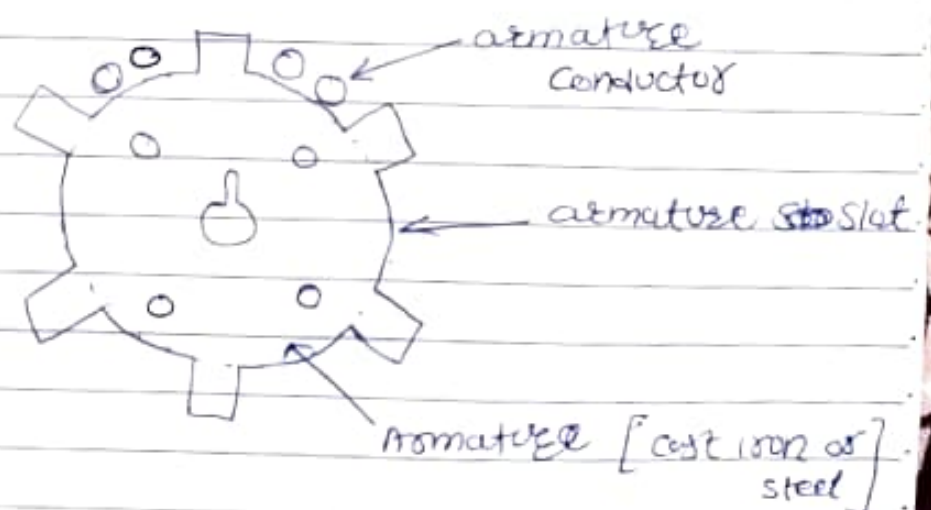 armature
Conductor
armature Slot
Armature [cast iron or
steel]